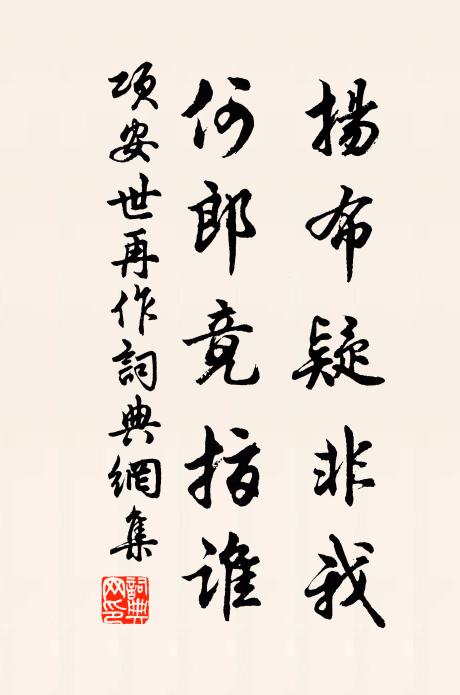 揚布疑非我
何郎竟指誰
項安世再作詞典網集
詞典網印